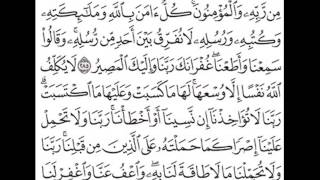 مِن رَّبِّهِۦ وَٱلْمُؤْمِنُونَ ۚ كُلٌّ ءَامَنَ بِٱللَّهِ وَمَلَـٰٓئِكَتِهِۦ
وَكُتُبِهِۦ وَرُسُلِهِۦ لَا نُفَرِّقُ بَيْنَ أَحَدٍ مِّن رُّسُلِهِۦ ۚ وَقَالُوا۟
سَمِعْنَا وَأَطَعْنَا ۖ غُفْرَانَكَ رَبَّنَا وَإِلَيْكَ ٱلْمَصِيرُ ٢٨٥ لَا يُكَلِّفُ
ٱللَّهُ نَفْسًا إِلَّا وُسْعَهَا ۚ لَهَا مَا كَسَبَتْ وَعَلَيْهَا مَا ٱكْتَسَبَتْ ۗ
رَبَّنَا لَا تُؤَاخِذْنَآ إِن نَّسِينَآ أَوْ أَخْطَأْنَا ۚ رَبَّنَا وَلَا تَحْمِلْ
عَلَيْنَآ إِصْرًا كَمَا حَمَلْتَهُۥ عَلَى ٱلَّذِينَ مِن قَبْلِنَا ۚ رَبَّنَا
وَلَا تُحَمِّلْنَا مَا لَا طَاقَةَ لَنَا بِهِۦ ۖ وَٱعْفُ عَنَّا وَٱغْفِرْ لَنَا